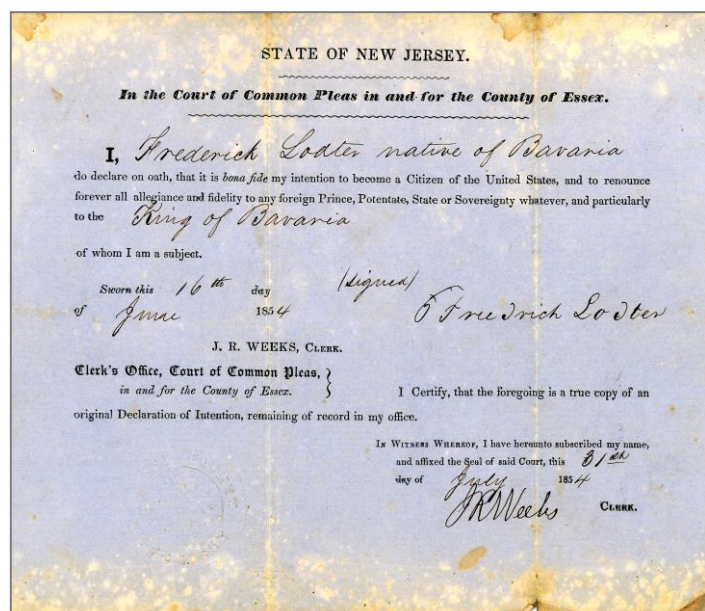 STATE OF NEW JERSEY.
In the Court of Common Pleas in and for the County of Essex.
I, Frederick Lodter native of Bavaria
do declare on oath, that it is bona fide my intention to become a Citizen of the United States, and to renounce
forever all allegiance and fidelity to any foreign Prince, Potentate, State or Sovereignty whatever, and particularly
to the King of Bavaria
of whom I am a subject.
Sworn this 16th day (signed)
of June 1854 Friedrich Lodter
J. R. WEEKS, CLERK.
Clerk's Office, Court of Common Pleas, }
in and for the County of Essex.
I Certify, that the foregoing is a true copy of an
original Declaration of Intention, remaining of record in my office.
IN WITNESS WHEREOF, I have hereunto subscribed my name,
and affixed the Seal of said Court, this 31st
day of July 1854
J R Weeks CLERK.